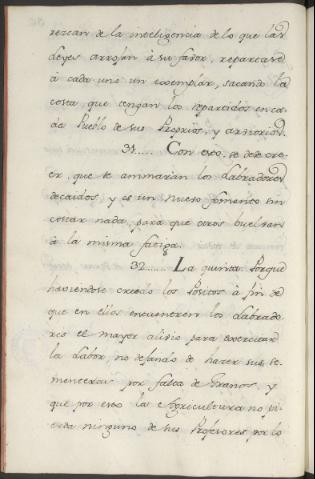 rezcan de la inteligencia de lo que las
Leyes arrojan à su favor, repartase
à cada uno un exemplar, sacando la
costa, que tengan los repartidos en ca-
da Pueblo de sus Proprios, y arvitrios.
31..... Con esto, se debe cre-
er, que se animarían los Labradores
decaidos, y es un nuevo fomento sin
costar nada, para que otros buelvan
à la misma fatiga.
32...... La quinta: Porque
haviendose creado los Positos à fin de
que en ellos encuentren los Labrado-
res el mayor alivio para exercitar
la Labor, no dejando de hacer sus se-
menteras por falta de Granos, y
que por esto la Agricultura no pi-
erda ninguno de sus Profesores por lo